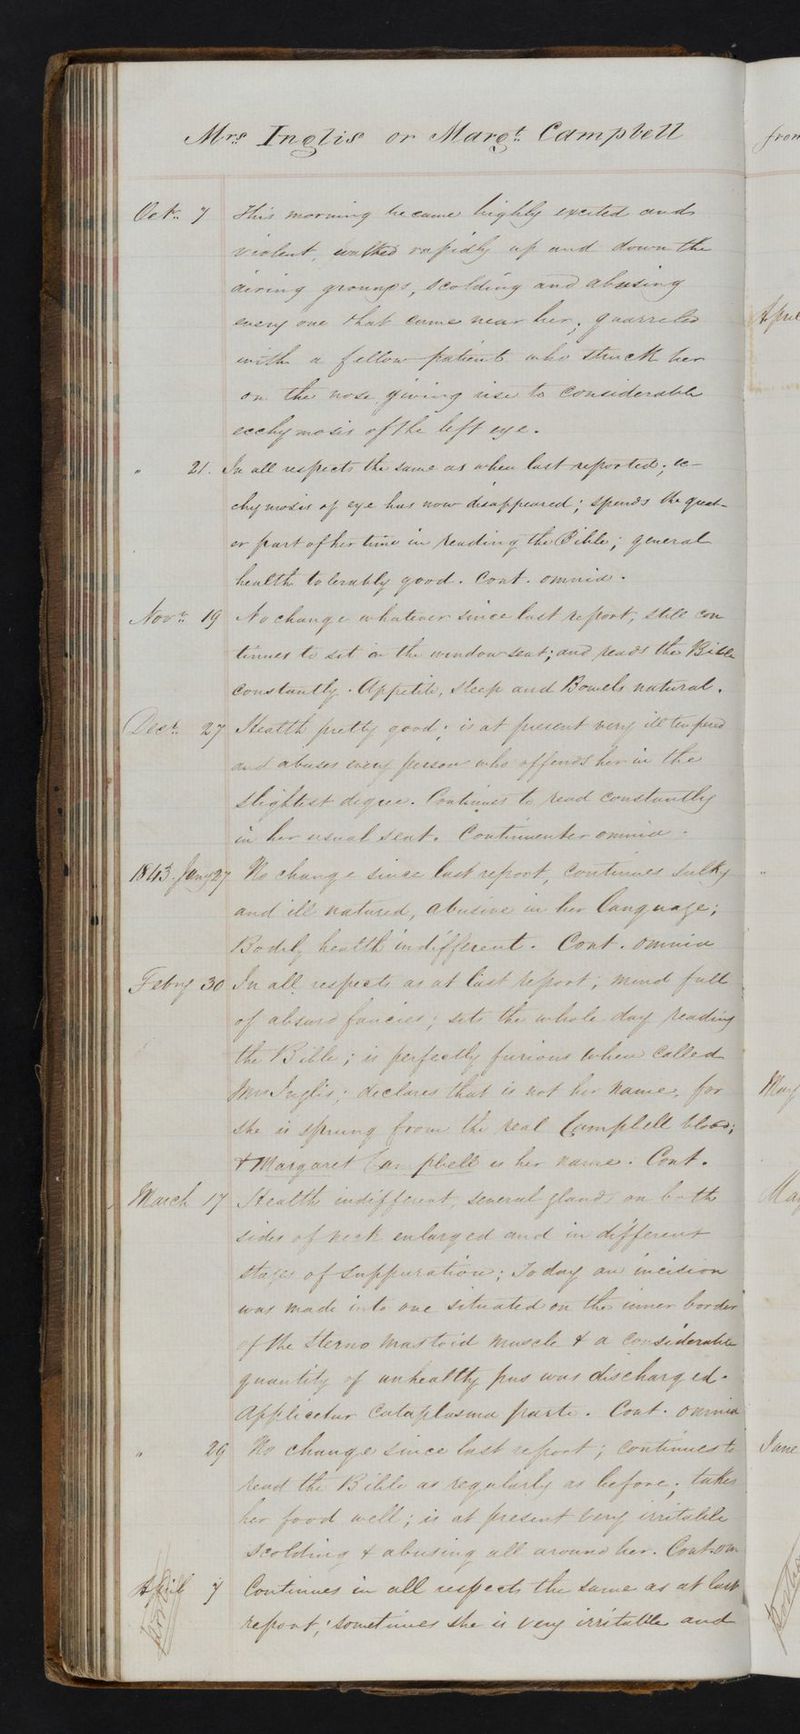 Mrs Inglis or Margt. Campbell
Oct. 7 This morning became highly excited and
violent, walked rapidly up and down the
airing grounds, scolding and abusing
every one that came near her; quarreled
with a fellow patient who struck her
on the nose giving rise to considerable
ecchymosis of the left eye.
" 21. In all respects the same as when last reported; ec-
chymosis of eye has now disappeared; spends the great-
er part of her time in reading the Bible; general
health tolerably good. Cont. omnia.
Novr. 19 No change whatever since last report, still con
tinues to sit on the window seat; and reads the Bible
constantly. Appetite, Sleep and Bowels natural.
Decr. 27 Health pretty good; is at present very ill tempered
and abuses every person who offends her in the
slightest degree. Continues to read constantly
in her usual seat. Continuenter omnia.
1843. Jany 27 No change since last report, continues sulky
and ill natured, abusive in her language;
Bodily health indifferent. Cont. omnia
Febry 30 In all respects as at last report; mind full
of absurd fancies; sits the whole day reading
the Bible; is perfectly furious when called
Mrs Inglis; declares that is not her name, for
she is sprung from the real Campbell blood;
& Margaret Campbell is her name. Cont.
March 17 Health indifferent, several glands on both
sides of neck enlarged and in different
stages of suppuration; Today an incision
was made into one situated on the inner border
of the Sterno mastoid muscle & a considerable
quantity of unhealthy pus was discharged.
Applicetur Cataplasma parti. Cont. omnia
" 29 No change since last report; continues to
read the Bible as regularly as before; takes
her food well; is at present very irritable
scolding & abusing all around her. Cont. om
April 7 Continues in all respects the same as at last
report; sometimes she is very irritable and
from
April
"
May
May
June